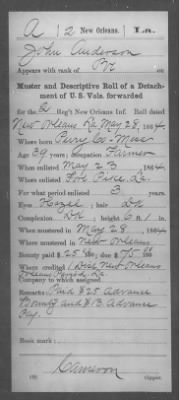 A | 2 New Orleans. | La.
John Anderson
Appears with rank of Pvt
Muster and Descriptive Roll of a Detachment
of U. S. Vols. forwarded
for the 2 Reg't New Orleans Inf. Roll dated
New Orleans La May 28, 1864
Where born Perry Co. Miss
Age 39 years; occupation Farmer
When enlisted May 23, 1864
Where enlisted Fort Pike, La.
For what period enlisted 3 years.
Eyes Hazel; hair Dk
Complexion Dk; 6 ft. 1 in.
When mustered in May 28, 1864
Where mustered in New Orleans
Bounty paid $25 00/100; due $75 00/100
Where credited 1 Dist New Orleans
Orleans Parish La.
Company to which assigned
Remarks: Paid $25 Advance
Bounty and $13 Advance
Pay.
Book mark:
Cameron
(339) Copyist.